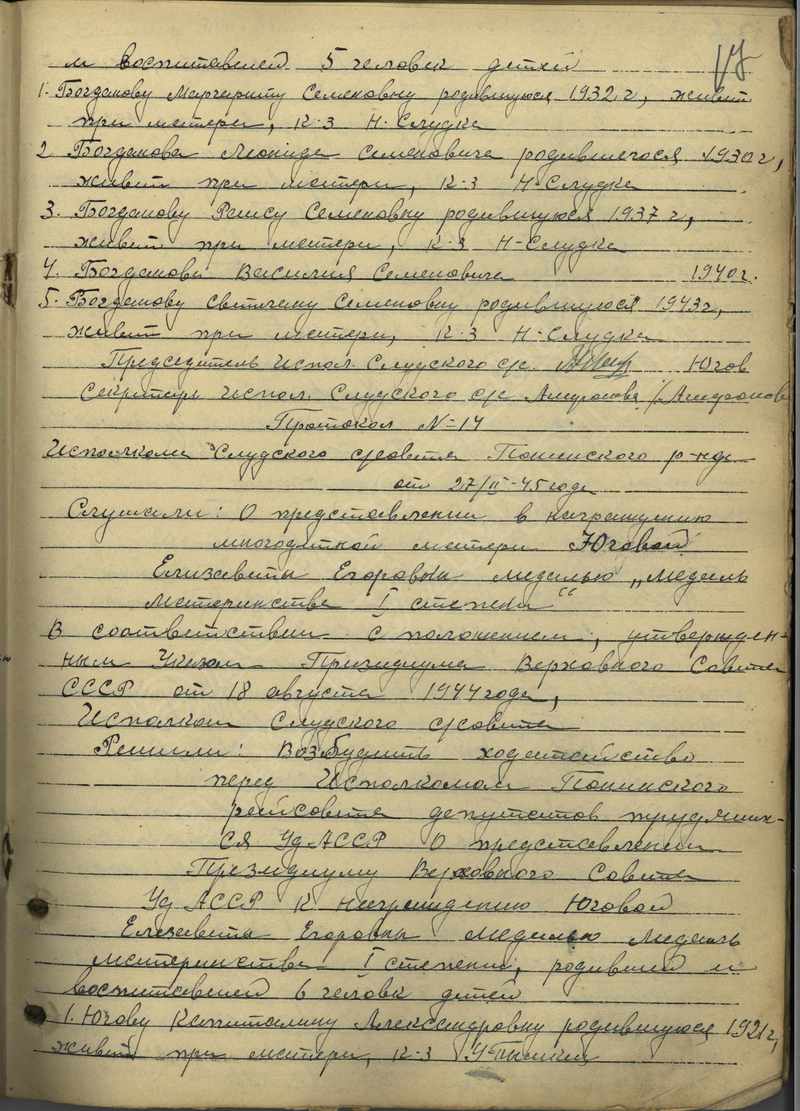 17
и воспитавшей 5 человек детей
1. Богданову Маргариту Семеновну родившуюся 1932 г, живет
при матери, к-з Н-Слудка
2 Богданова Леонида Семеновича родившегося 1930 г,
живет при матери, к-з Н-Слудка
3. Богданову Раису Семеновну родившуюся 1937 г,
живет при матери, к-з Н-Слудка
4. Богданова Василия Семеновича 1940 г.
5. Богданову Светлану Семеновну родившуюся 1943 г,
живет при матери, к-з Н-Слудка
Председатель Испол. Слудского с/с Югов
Секретарь испол. Слудского с/с
Протокол N-14
Исполкома Слудского с/совета Понинского р-на
от 27/II-45 года
Слушали: О представлении в награждению
многодетной матери Юговой
Елизаветы Егоровны медалью „Медаль
Материнства I степени“
В соответствии с положением, утвержден-
ным Указом Президиума Верховного Совета
СССР от 18 августа 1944 года,
Исполком Слудского с/совета
Решили: Возбудить ходатайство
перед Исполкомом Понинского
райсовета депутатов трудящих-
ся УдАССР О представлении
Президиуму Верховного Совета
Уд АССР к награждению Юговой
Елизаветы Егоровны медалью Медаль
материнства I степени, родившей и
воспитавшей 6 человек детей
1. Югову Капиталину Александровну родившуюся 1921 г,
живет при матери, к-з